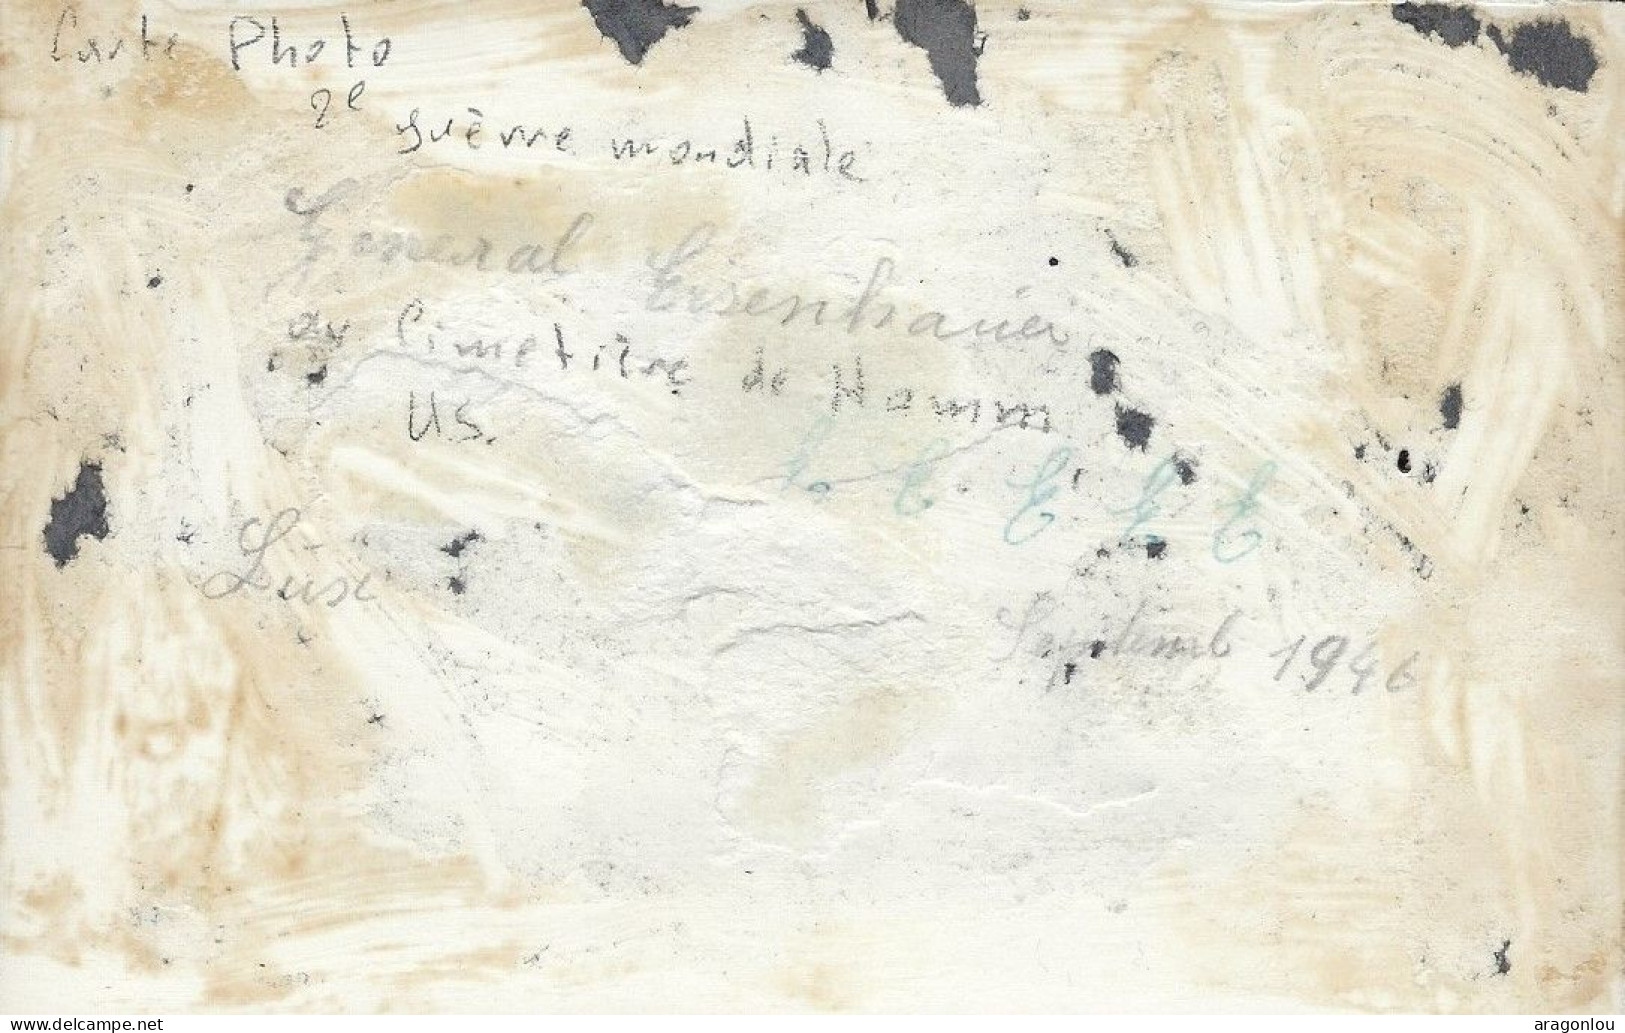 Carte Photo
2e
guèrre mondiale
General Eisenhauer
au Cimetière de Hamm
US.
E E E E E
Lux
Septemb 1946
www.delcampe.net
aragonlou